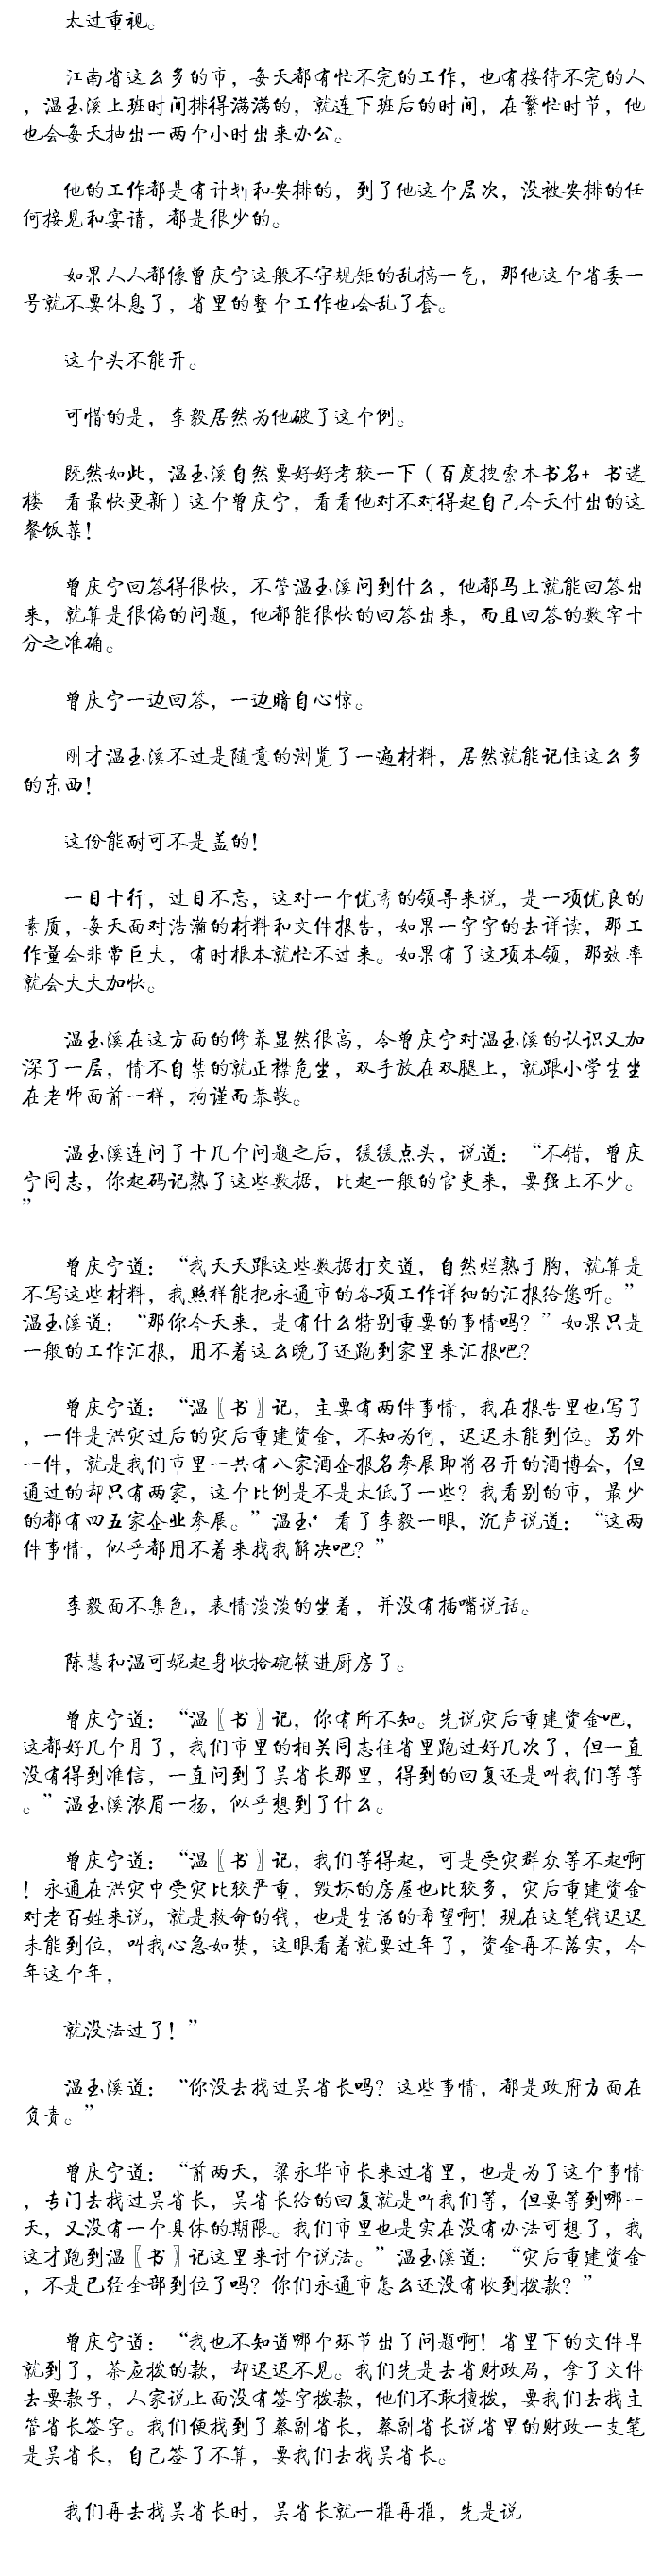 太过重视。
江南省这么多的市，每天都有忙不完的工作，也有接待不完的人
，温玉溪上班时间排得满满的，就连下班后的时间，在繁忙时节，他
也会每天抽出一两个小时出来办公。
他的工作都是有计划和安排的，到了他这个层次，没被安排的任
何接见和宴请，都是很少的。
如果人人都像曾庆宁这般不守规矩的乱搞一气，那他这个省委一
号就不要休息了，省里的整个工作也会乱了套。
这个头不能开。
可惜的是，李毅居然为他破了这个例。
既然如此，温玉溪自然要好好考较一下（百度搜索本书名+ 书迷
楼　看最快更新）这个曾庆宁，看看他对不对得起自己今天付出的这
餐饭菜！
曾庆宁回答得很快，不管温玉溪问到什么，他都马上就能回答出
来，就算是很偏的问题，他都能很快的回答出来，而且回答的数字十
分之准确。
曾庆宁一边回答，一边暗自心惊。
刚才温玉溪不过是随意的浏览了一遍材料，居然就能记住这么多
的东西！
这份能耐可不是盖的！
一目十行，过目不忘，这对一个优秀的领导来说，是一项优良的
素质，每天面对浩瀚的材料和文件报告，如果一字字的去详读，那工
作量会非常巨大，有时根本就忙不过来。如果有了这项本领，那效率
就会大大加快。
温玉溪在这方面的修养显然很高，令曾庆宁对温玉溪的认识又加
深了一层，情不自禁的就正襟危坐，双手放在双腿上，就跟小学生坐
在老师面前一样，拘谨而恭敬。
温玉溪连问了十几个问题之后，缓缓点头，说道：“不错，曾庆
宁同志，你起码记熟了这些数据，比起一般的官吏来，要强上不少。
”
曾庆宁道：“我天天跟这些数据打交道，自然烂熟于胸，就算是
不写这些材料，我照样能把永通市的各项工作详细的汇报给您听。”
温玉溪道：“那你今天来，是有什么特别重要的事情吗？”如果只是
一般的工作汇报，用不着这么晚了还跑到家里来汇报吧？
曾庆宁道：“温〖书〗记，主要有两件事情，我在报告里也写了
，一件是洪灾过后的灾后重建资金，不知为何，迟迟未能到位。另外
一件，就是我们市里一共有八家酒企报名参展即将召开的酒博会，但
通过的却只有两家，这个比例是不是太低了一些？我看别的市，最少
的都有四五家企业参展。”温玉• 看了李毅一眼，沉声说道：“这两
件事情，似乎都用不着来找我解决吧？”
李毅面不集色，表情淡淡的坐着，并没有插嘴说话。
陈慧和温可妮起身收拾碗筷进厨房了。
曾庆宁道：“温〖书〗记，你有所不知。先说灾后重建资金吧，
这都好几个月了，我们市里的相关同志往省里跑过好几次了，但一直
没有得到准信，一直问到了吴省长那里，得到的回复还是叫我们等等
。”温玉溪浓眉一扬，似乎想到了什么。
曾庆宁道：“温〖书〗记，我们等得起，可是受灾群众等不起啊
！永通在洪灾中受灾比较严重，毁坏的房屋也比较多，灾后重建资金
对老百姓来说，就是救命的钱，也是生活的希望啊！现在这笔钱迟迟
未能到位，叫我心急如焚，这眼看着就要过年了，资金再不落实，今
年这个年，
就没法过了！”
温玉溪道：“你没去找过吴省长吗？这些事情，都是政府方面在
负责。”
曾庆宁道：“前两天，梁永华市长来过省里，也是为了这个事情
，专门去找过吴省长，吴省长给的回复就是叫我们等，但要等到哪一
天，又没有一个具体的期限。我们市里也是实在没有办法可想了，我
这才跑到温〖书〗记这里来讨个说法。”温玉溪道：“灾后重建资金
，不是已经全部到位了吗？你们永通市怎么还没有收到拨款？”
曾庆宁道：“我也不知道哪个环节出了问题啊！省里下的文件早
就到了，茶应拨的款，却迟迟不见。我们先是去省财政局，拿了文件
去要款子，人家说上面没有签字拨款，他们不敢擅拨，要我们去找主
管省长签字。我们便找到了蔡副省长，蔡副省长说省里的财政一支笔
是吴省长，自己签了不算，要我们去找吴省长。
我们再去找吴省长时，吴省长就一推再推，先是说